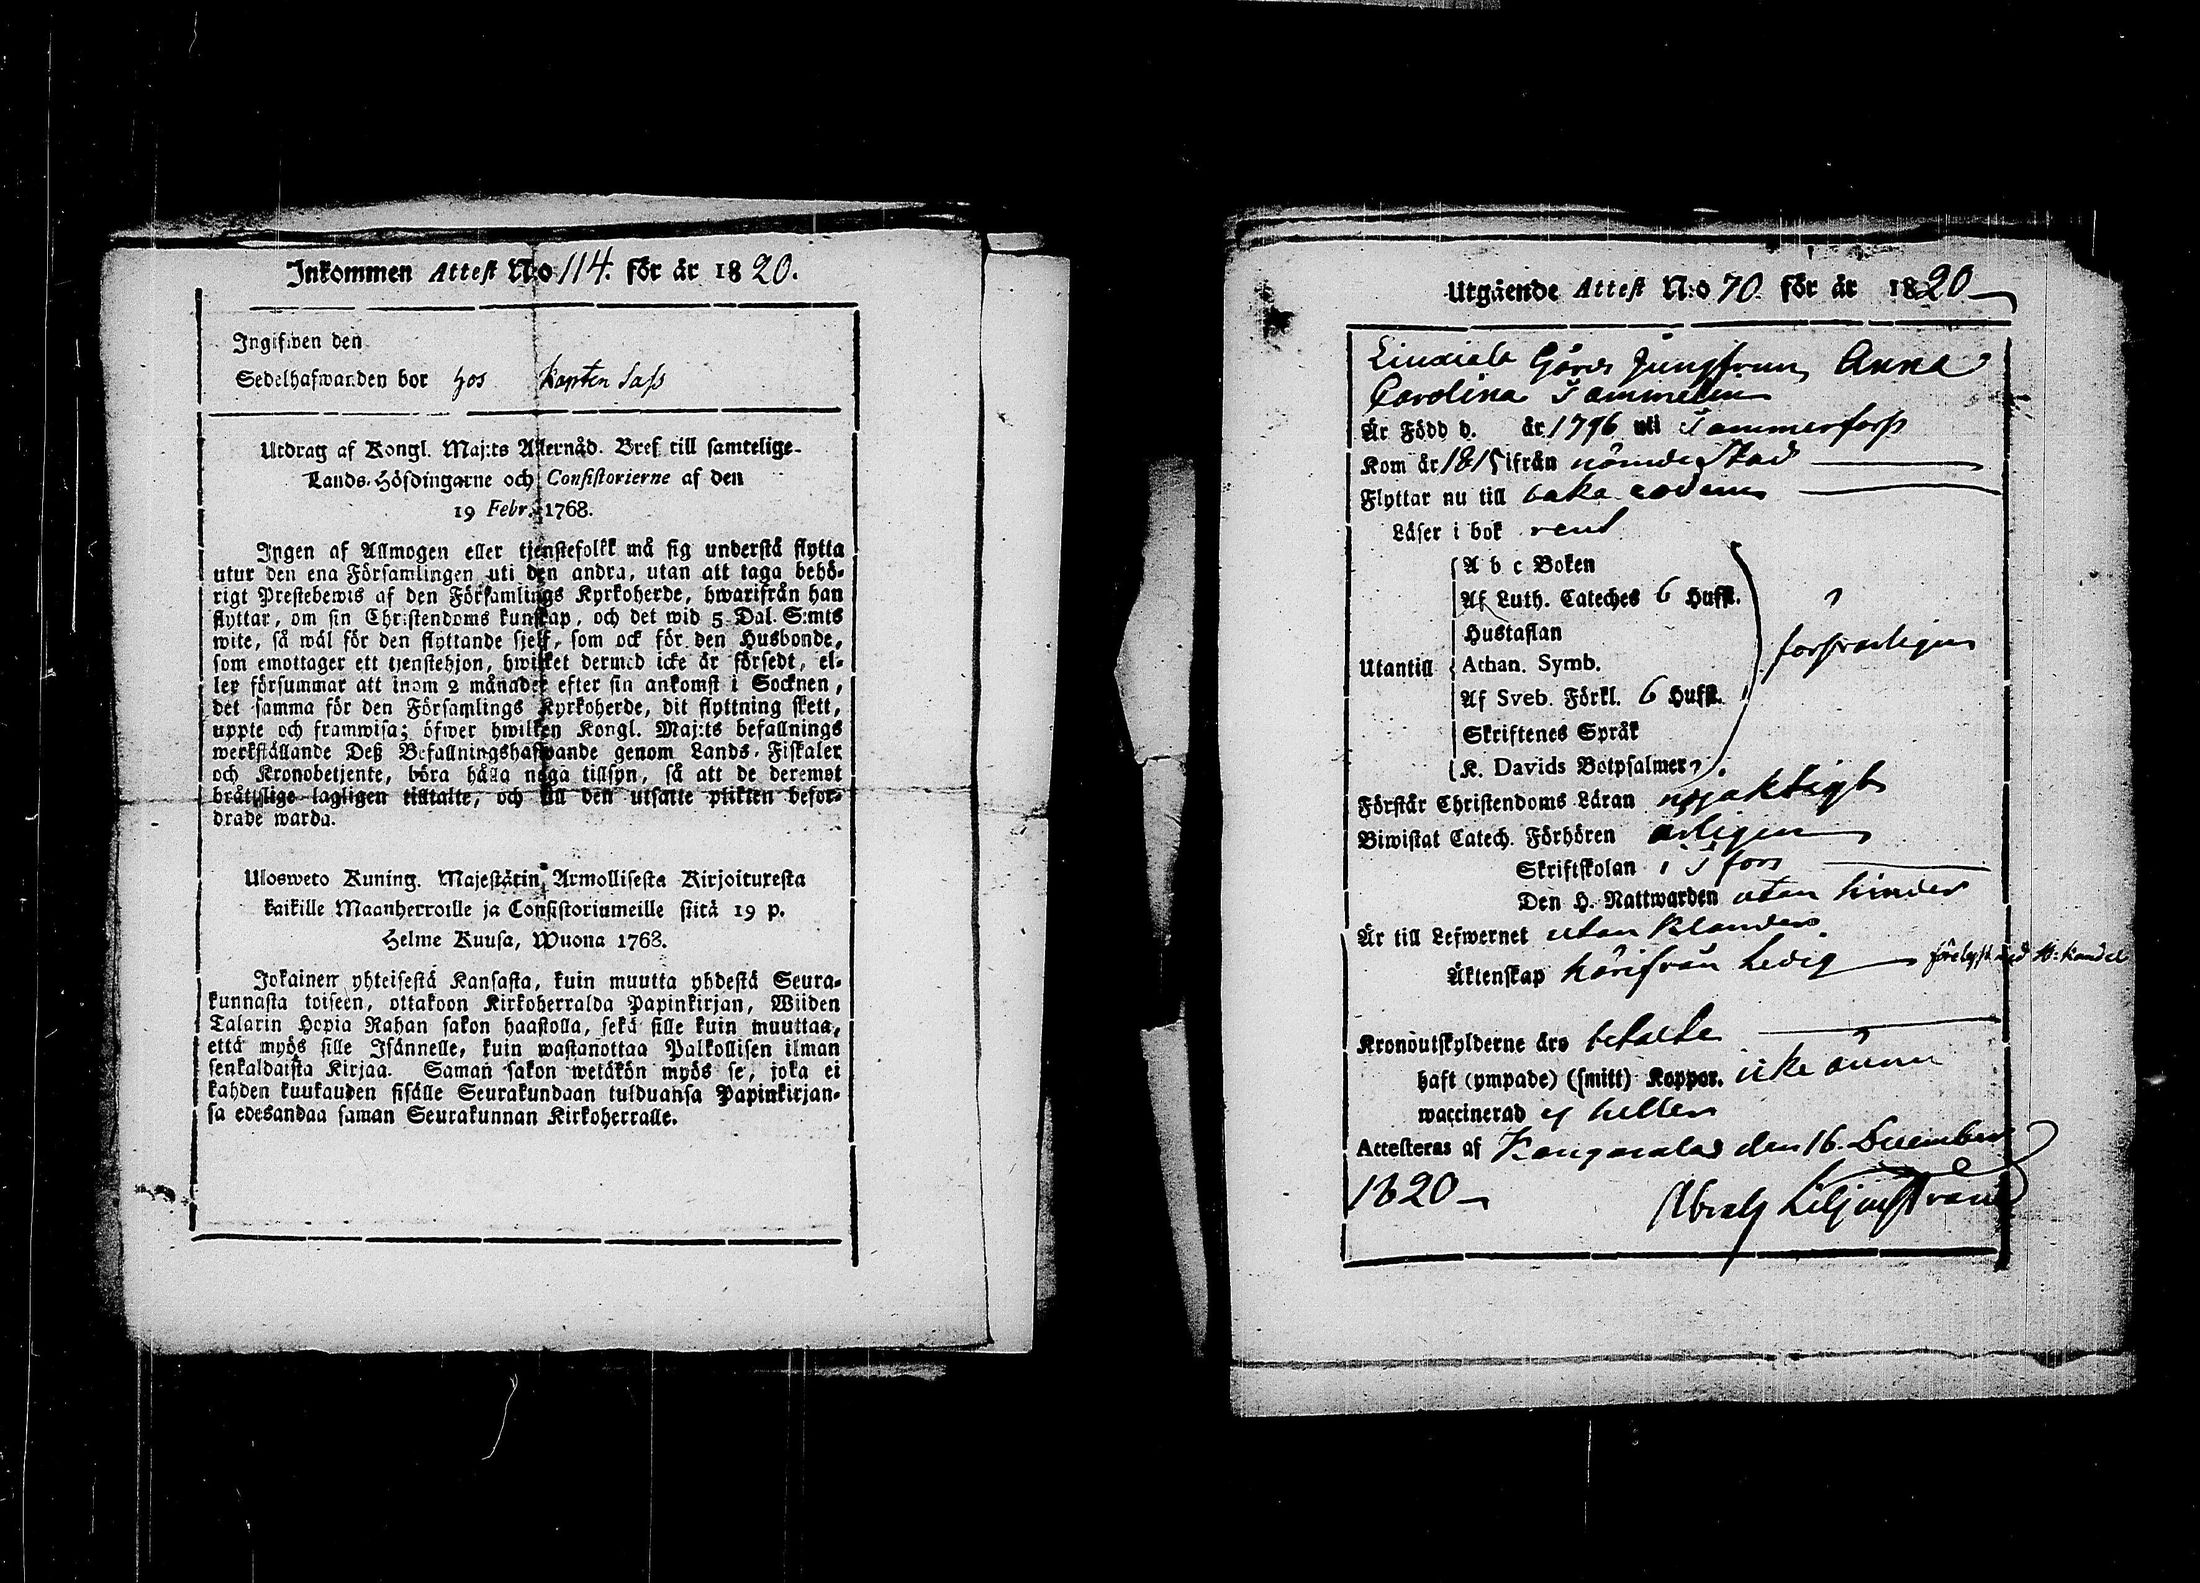 Inkommen Attest N:o 114. för år 1820.
Ingifwen den
Sedelhafwanden bor hos Kapten Sass
Utdrag af Kongl. Maj:ts Allernåd. Bref till samtelige
Lands-Höfdingarne och Consistorierne af den
19 Febr. 1768.
Ingen af Allmogen eller tjenstefolkk må sig understå flytta
utur den ena Församlingen uti den andra, utan att taga behö-
rigt Prestebewis af den Församlings Kyrkoherde, hwarifrån han
flyttar, om sin Christendoms kunskap, och det wid 5 Dal. S:mts
wite, så wäl för den flyttande sjelf, som ock för den Husbonde,
som emottager ett tjenstehjon, hwilket dermed icke är försedt, el-
ler försummar att inom 2 månader efter sin ankomst i Socknen,
det samma för den Församlings Kyrkoherde, dit flyttning skett,
uppte och framwisa; öfwer hwilken Kongl. Maj:ts befallnings
werkställande Deß Befallningshafwande genom Lands-Fiskaler
och Kronobetjente, böra hålla noga tillsyn, så att de deremot
bråttslige lagligen tilltalte, och till den utsatte plikten befor-
drade warda.
Ulosweto Kuning. Majestätin Armollisesta Kirjoituxesta
kaikille Maanherroille ja Consistoriumeille siitä 19 p.
Helme Kuusa, Wuona 1768.
Jokainen yhteisestä Kansasta, kuin muutta yhdestä Seura-
kunnasta toiseen, ottakoon Kirkoherralda Papinkirjan, Wiiden
Talarin Hopia Rahan sakon haastolla, sekä sille kuin muuttaa,
että myös sille Isännelle, kuin wastanottaa Palkollisen ilman
senkaldaista Kirjaa. Saman sakon wetäkön myös se, joka ei
kahden kuukauden sisälle Seurakundaan tulduansa Papinkirjan-
sa edesandaa saman Seurakunnan Kirkoherralle.
Utgående Attest N:o 70. för år 1820
Liuxiala Gårds Jungfrun Anna
Carolina Tammelin
Är Född d. år 1796 uti Tammerforss
Kom år 1815 ifrån nämde Stad
Flyttar nu till baka eodem
Läser i bok rent
A b c Boken
Af Luth. Cateches 6 Hufst.
Hustaflan
Utantill Athan. Symb. försvarligen
Af Sveb. Förkl. 6 Hufst.
Skriftenes Språk
K. Davids Botpsalmer
Förstår Christendoms Läran nöjaktigt
Biwistat Catech. Förhören årligen
Skriftskolan i T fors
Den H. Nattwarden utan hinder
Är till Lefwernet utan klander
Äktenskap härifrån ledig förelyst med
Kronoutskylderne äro betalte
haft (ympade) (smitt) Koppor. icke ännu
waccinerad ej heller
Attesteras af Kangasala den 16. December
1820 Abrah Liljestrand